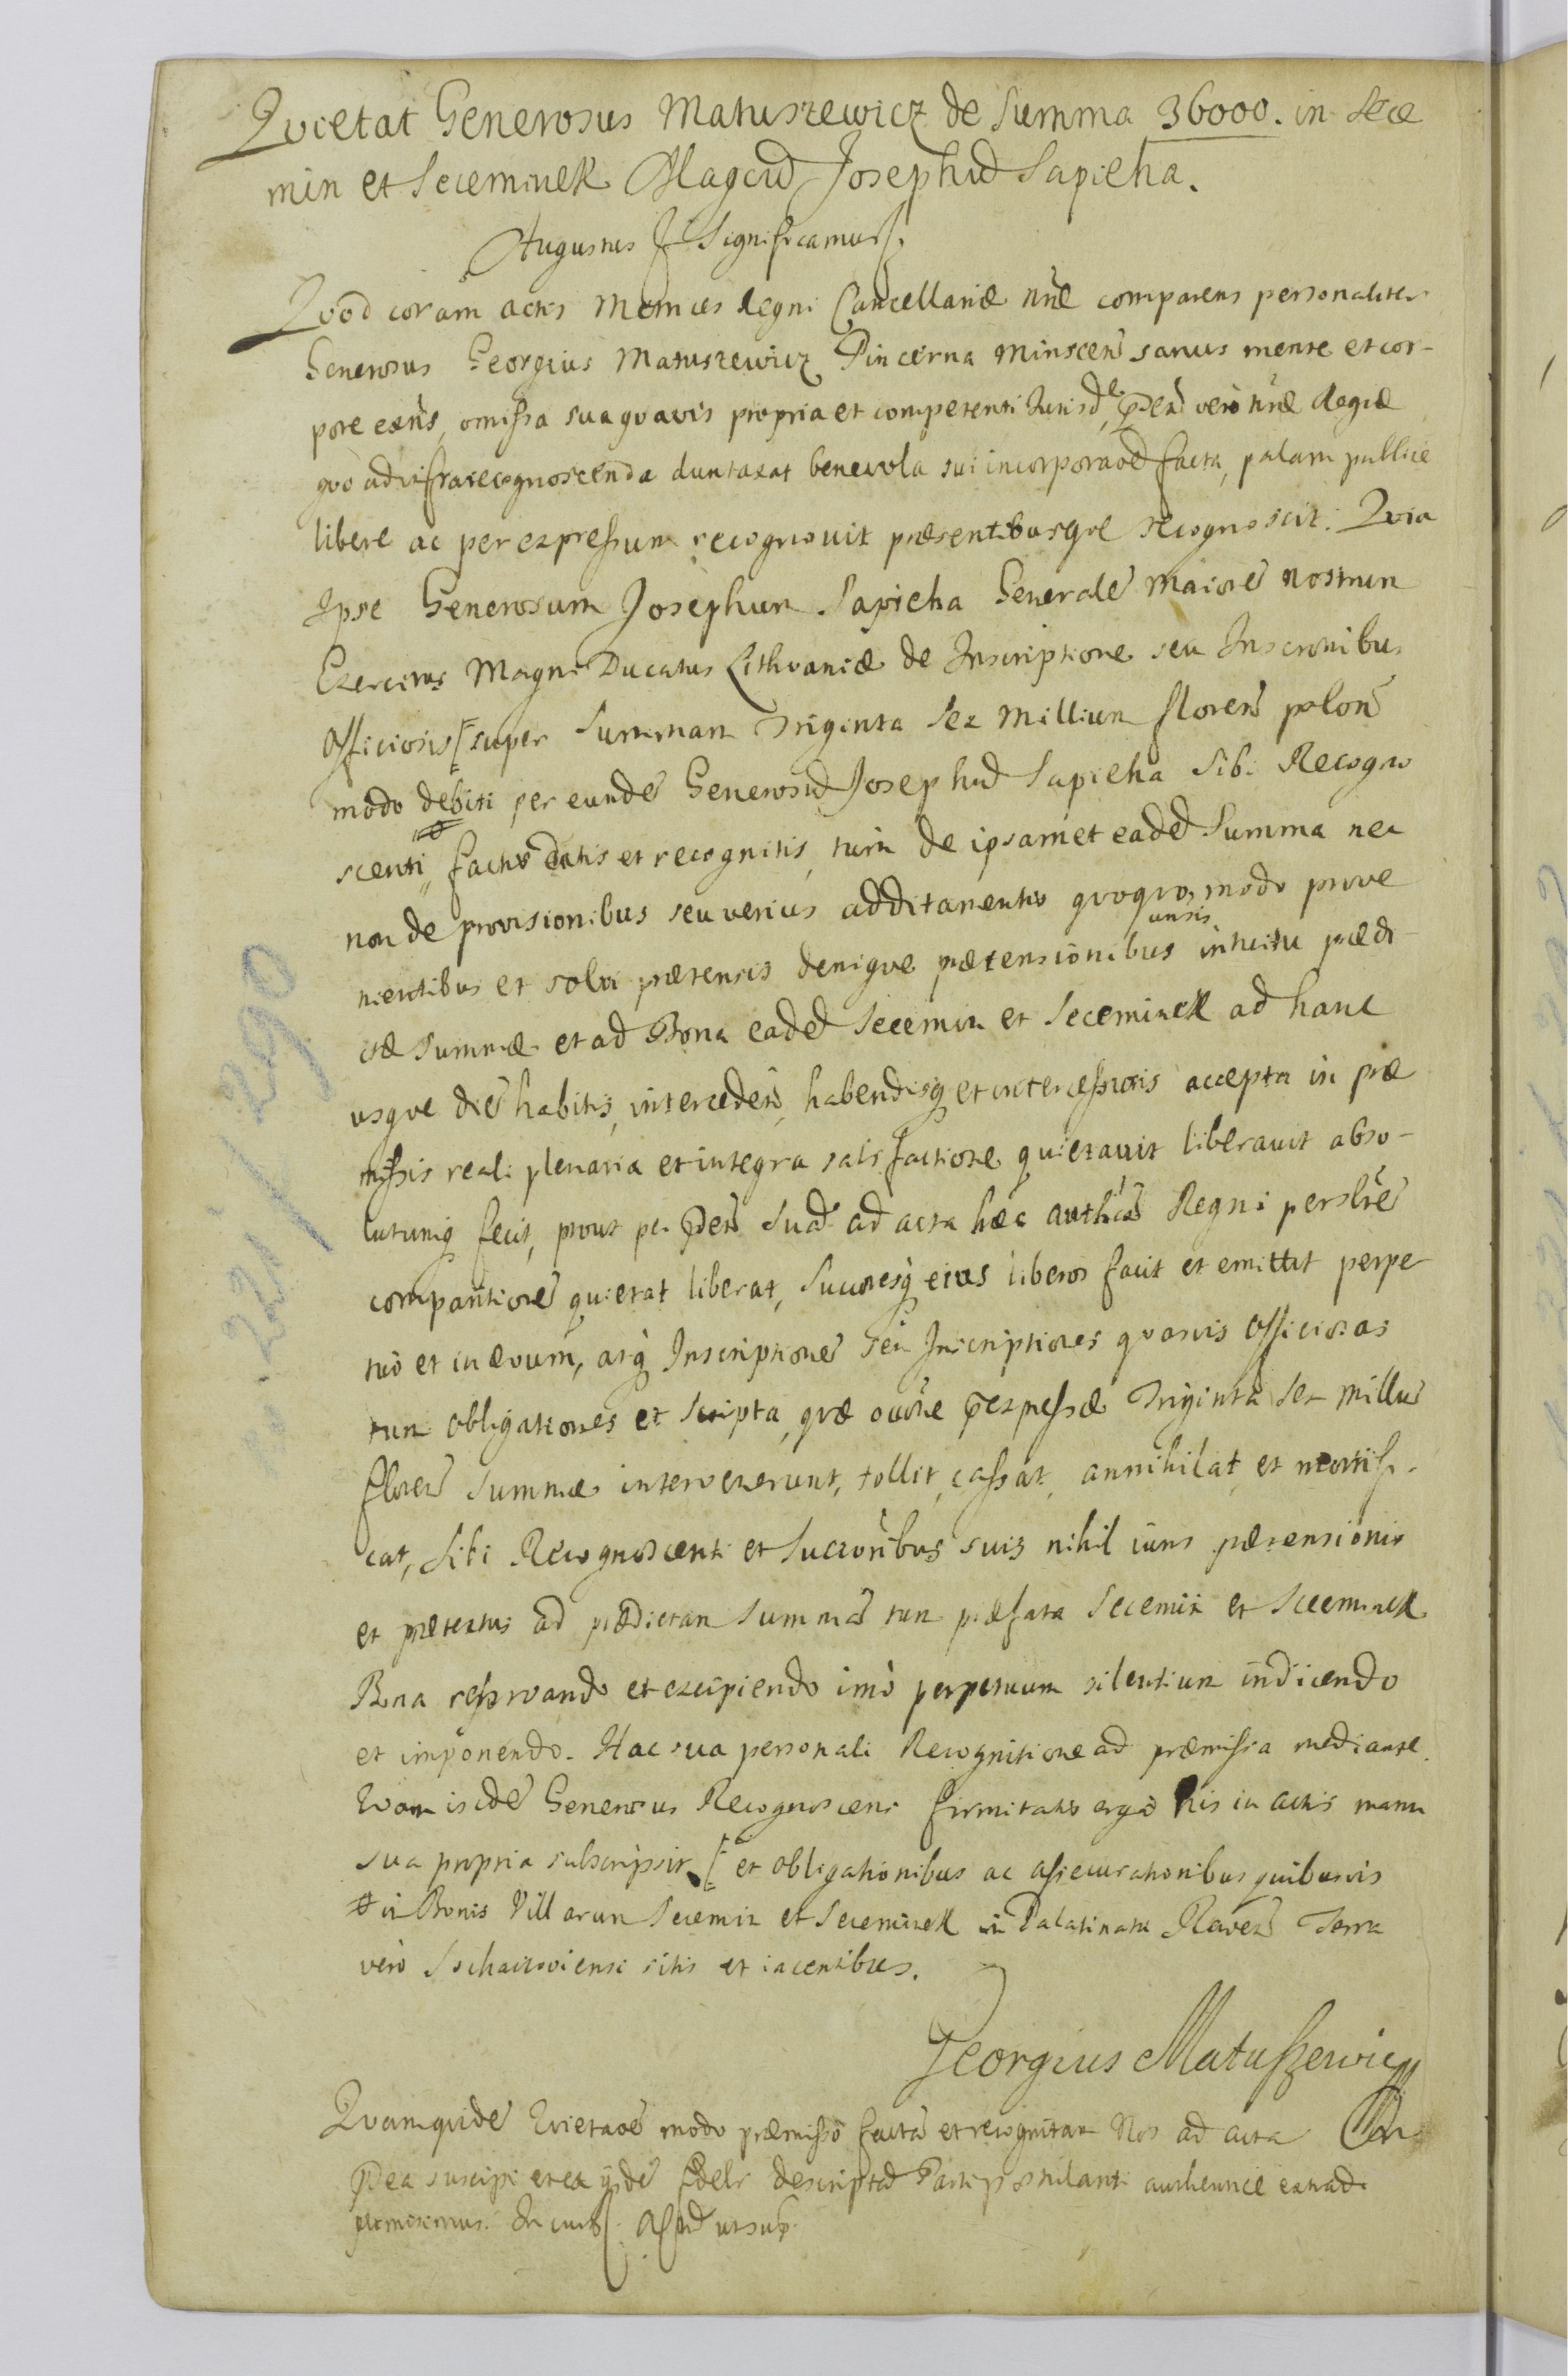 Qvietat Generosus Matuszewicz de Summa 36000. in Sece
min et Seceminek Magcũ Josephũ Sapieha.
Augustus II Significamus.
Qvod coram actis Metrices Regni Cancellariæ nræ comparens personaliter
Generosus Georgius Matuszewicz Pincerna Minscen̄ sanus mente et cor-
pore exēns, omissa sua qvavis propria et competenti Jurisdne, pden̄ vero nræ Regiæ
qvo ad infra recognoscenda duntaxat benevola sui incorporaōe facta, palam publice
libere ac per expressum recognovit præsentibusqve recognoscit: Qvia
Ipse Generosum Josephum Sapieha Generalē Maiorē nostrum
Exercitus Magni Ducatus Lithvaniæ de Inscriptione seu Inscronibus
Officiosis [super Summam Triginta Sex Millium floren̄ polon̄
modo debiti per eundē Generosũ Josephũ Sapieha Sibi Recogno
scenti factis datis et recognitis, tum de ipsamet eadē Summa nec
non de provisionibus seu verius additamentis qvoqvomodo prove
nientibus et solvi prætensis deniqve prætensionibus unsis intuitu prædi-
ctæ Summæ et ad Bona eadē Secemin et Seceminek ad hanc
usqve diē habitis, interceden̄, habendisq et intercessuris accepta in præ
missis reali plenaria et integra satisfactione qvietavit liberavit abso-
lutumq fecit, prout per pden̄ Suā ad acta hæc authēa Regni persblē
comparitionē qvietat liberat, Succoresq eius liberos facit et emittit perpe
tuo et in ævum, atq Inscriptionē seu Inscriptiones qvasvis Officiosas
tum obligationes et scripta, qvæ ōuōne pexpressæ Triginta Sex Milliũ
floren̄ Summæ intervenerunt, tollit, cassat, annihilat et mortifi-
cat, Sibi Recognoscenti et Succoribus suis nihil iuris prætensionis
et prætextus ad prædictam Summā tum præfata Secemin et Seceminek
Bona reservando et excipiendo imò perpetuum silentium indicendo
et imponendo. Hac sua personali Recognitione ad præmissa mediante.
Evam isdē Generosus Recognoscens firmitatis ergo his in actis manu
sua propria subscripsit [ et obligationibus ac assecurationibus quibusvis
# in Bonis Villarum Secemin et Seceminek in Palatinatu Raven̄ Terra
vero Sochacsoviensi sitis et iacentibus.
Georgius Matuszewicz
Qvam qvidē Qvietaōē modo præmisso factā et recognitam Nos ad acta
pdea suscipi et ex ysdē fidelr descriptā Parti postulanti authentice extradi
permisimus. In cuius. Actũ ut sup